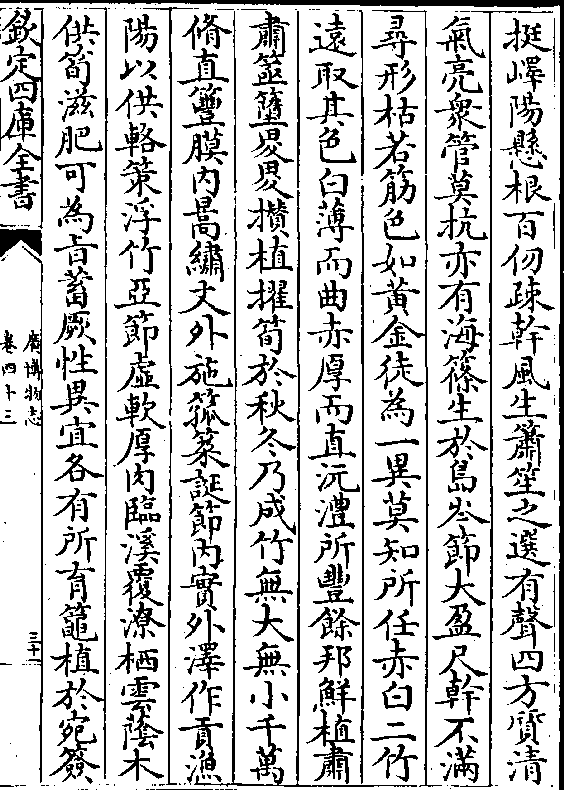 挺嶧陽懸根百仞疎幹風生簫笙之選有聲四方質清
氣亮衆管莫抗亦有海篠生於島岑節大盈尺幹不滿
尋形枯若筋色如黃金徒為一異莫知所任赤白二竹
遠取其色白薄而曲赤厚而直沅澧所豐餘邦鮮植肅
肅䈏㙸畟畟攢植擢筍於秋冬乃成竹無大無小千萬
脩直簹膜内暠繡文外施箛䇞誕節内實外澤作貢漁
陽以供輅策浮竹亞節虛軟厚肉臨溪覆潦栖雲蔭木
供筍滋肥可為旨蓄厥性異宜各有所育䉋植於宛簩
欽定四庫全書
廣博物志
卷四十三
三十一